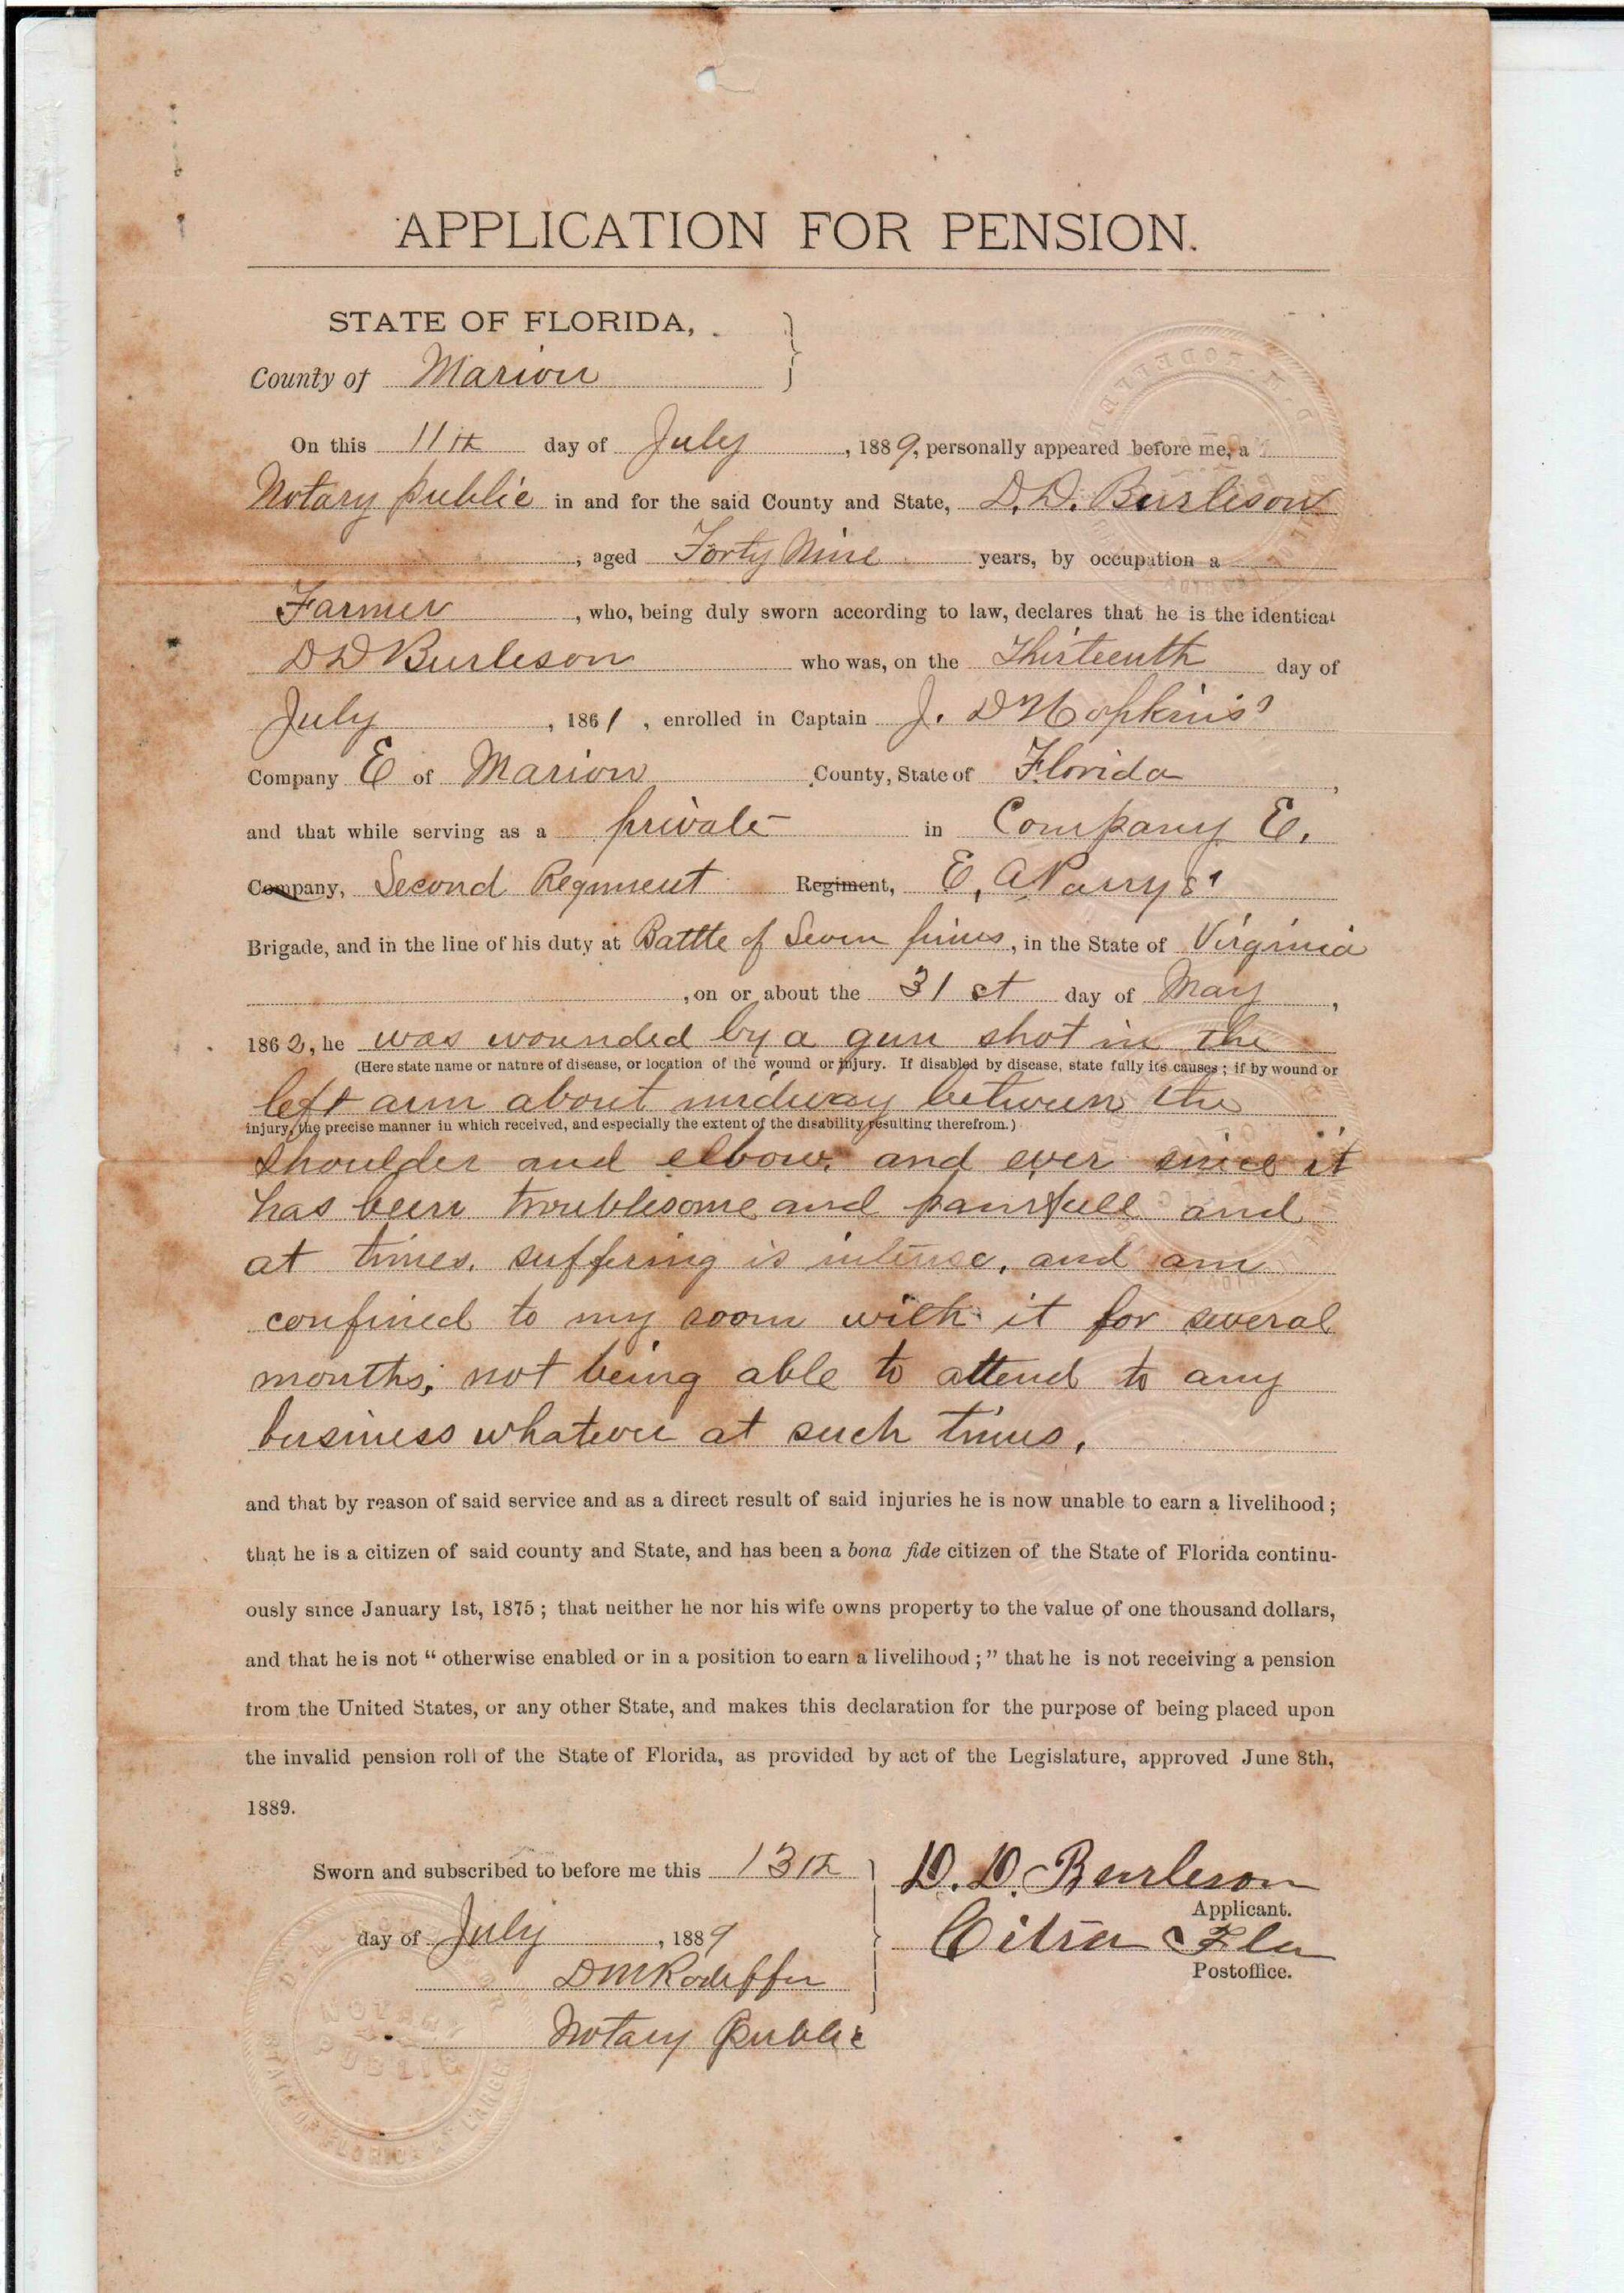 APPLICATION FOR PENSION.
STATE OF FLORIDA,
County of Marion
On this 11th day of July, 1889, personally appeared before me, a
Notary public in and for the said County and State, D. D. Burleson
, aged Forty Nine years, by occupation a
Farmer, who, being duly sworn according to law, declares that he is the identical
D D Burleson who was, on the Thirteenth day of
July, 1861, enrolled in Captain J. D Hopkins'
Company E of Marion County, State of Florida,
and that while serving as a private in Company E.
Company, Second Regiment Regiment, E. A Parrys'
Brigade, and in the line of his duty at Battle of Seven pines, in the State of Virginia
, on or about the 31st day of May,
1862, he was wounded by a gun shot in the
(Here state name or nature of disease, or location of the wound or injury. If disabled by disease, state fully its causes; if by wound or
left arm about midway between the
injury, the precise manner in which received, and especially the extent of the disability resulting therefrom.)
shoulder and elbow. and ever since it
has been troublesome and painfull and
at times. suffering is intense, and am
confined to my room with it for several
months; not being able to attend to any
business whatever at such times.
and that by reason of said service and as a direct result of said injuries he is now unable to earn a livelihood;
that he is a citizen of said county and State, and has been a bona fide citizen of the State of Florida continu-
ously since January 1st, 1875; that neither he nor his wife owns property to the value of one thousand dollars,
and that he is not "otherwise enabled or in a position to earn a livelihood;" that he is not receiving a pension
from the United States, or any other State, and makes this declaration for the purpose of being placed upon
the invalid pension roll of the State of Florida, as provided by act of the Legislature, approved June 8th,
1889.
Sworn and subscribed to before me this 13th
day of July, 1889
D M Rodeffer
Notary Public
D. D. Burleson
Applicant.
Citra Fla
Postoffice.
NOTARY
PUBLIC
STATE OF FLORIDA AT LARGE